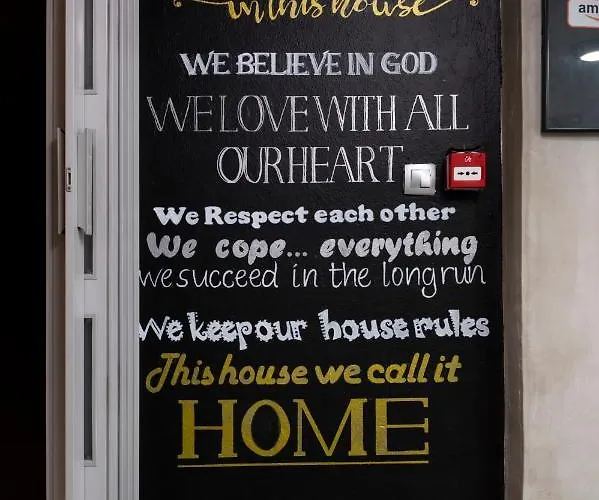 in this house
WE BELIEVE IN GOD
WE LOVE WITH ALL
OUR HEART
We Respect each other
We cope... everything
we succeed in the long run
We keep our house rules
This house we call it
HOME
am